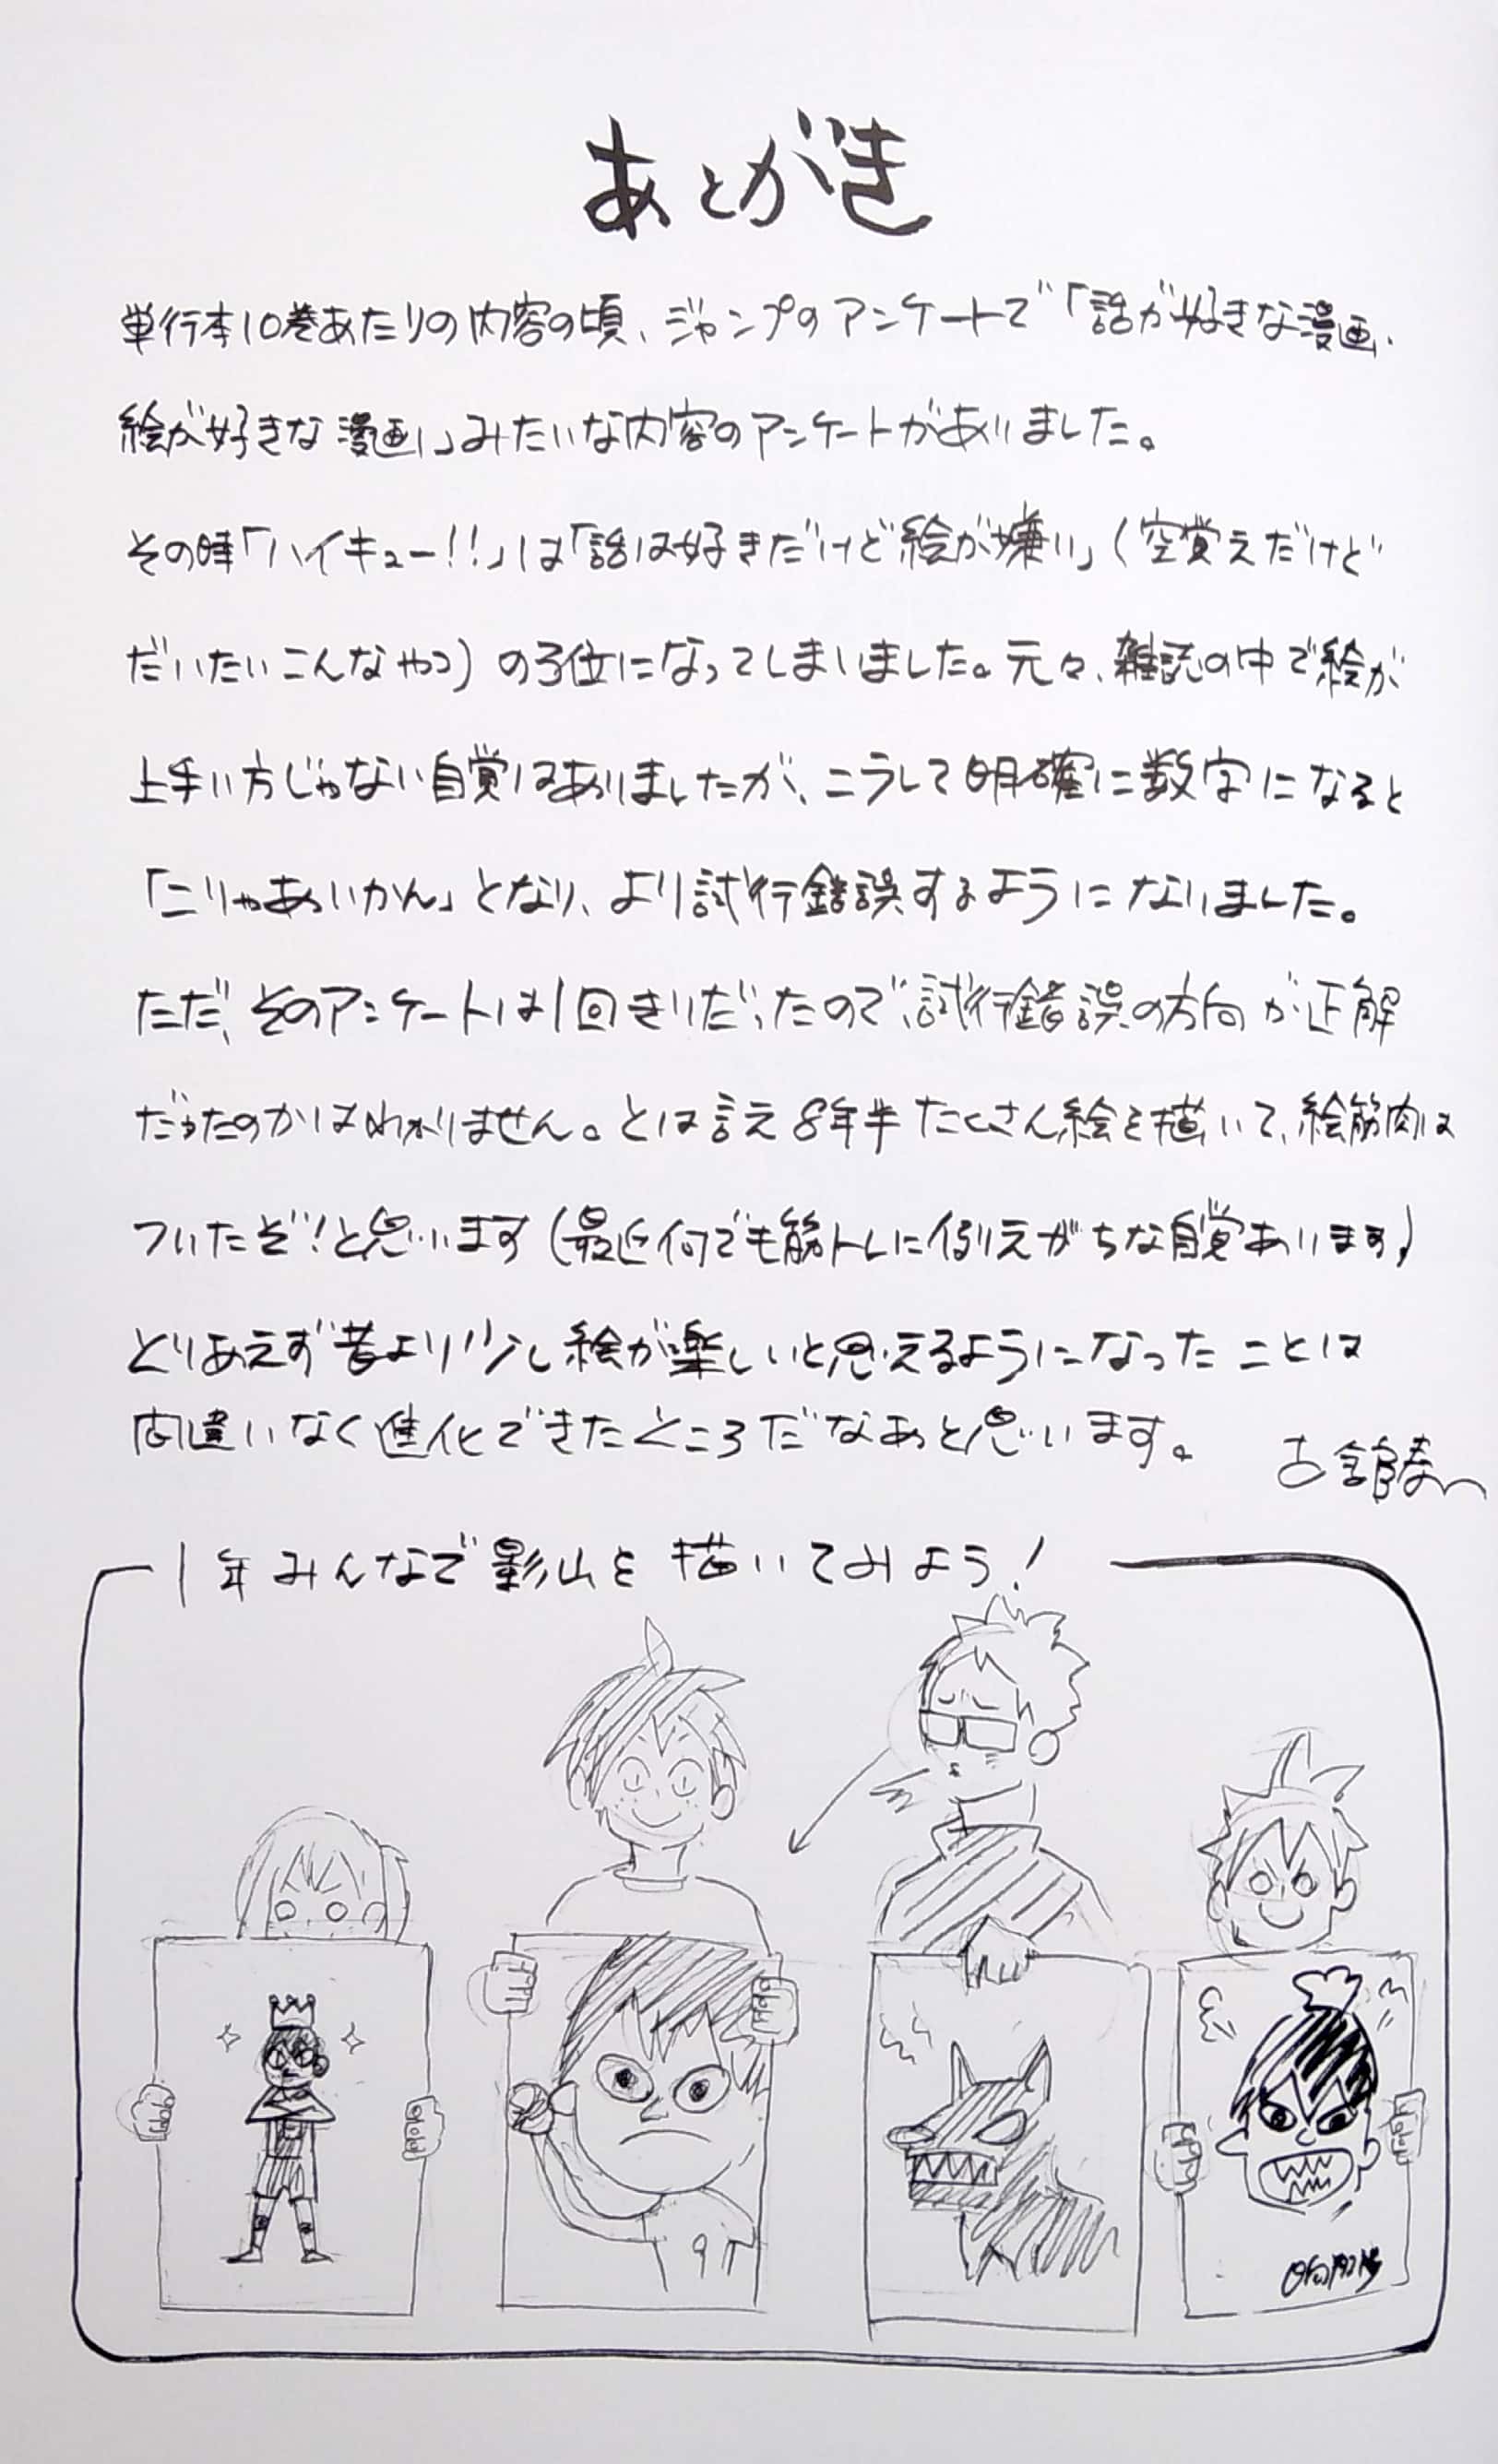 あとがき
単行本10巻あたりの内容の頃、ジャンプのアンケートで「話が好きな漫画、
絵が好きな漫画」みたいな内容のアンケートがありました。
その時「ハイキュー!!」は「話は好きだけど絵が嫌い」(空覚えだけど
だいたいこんなやつ)の3位になってしまいました。元々、雑誌の中で絵が
上手い方じゃない自覚はありましたが、こうして明確に数字になると
「こりゃあいかん」となり、より試行錯誤するようになりました。
ただ、そのアンケートは1回きりだったので、試行錯誤の方向が正解
だったのかはわかりません。とは言え8年半たくさん絵を描いて、絵筋肉は
ついたぞ!と思います(最近何でも筋トレに例えがちな自覚あります)
とりあえず昔より少し絵が楽しいと思えるようになったことは
間違いなく進化できたところだなあと思います。
古舘春一
1年みんなで影山を描いてみよう!
9